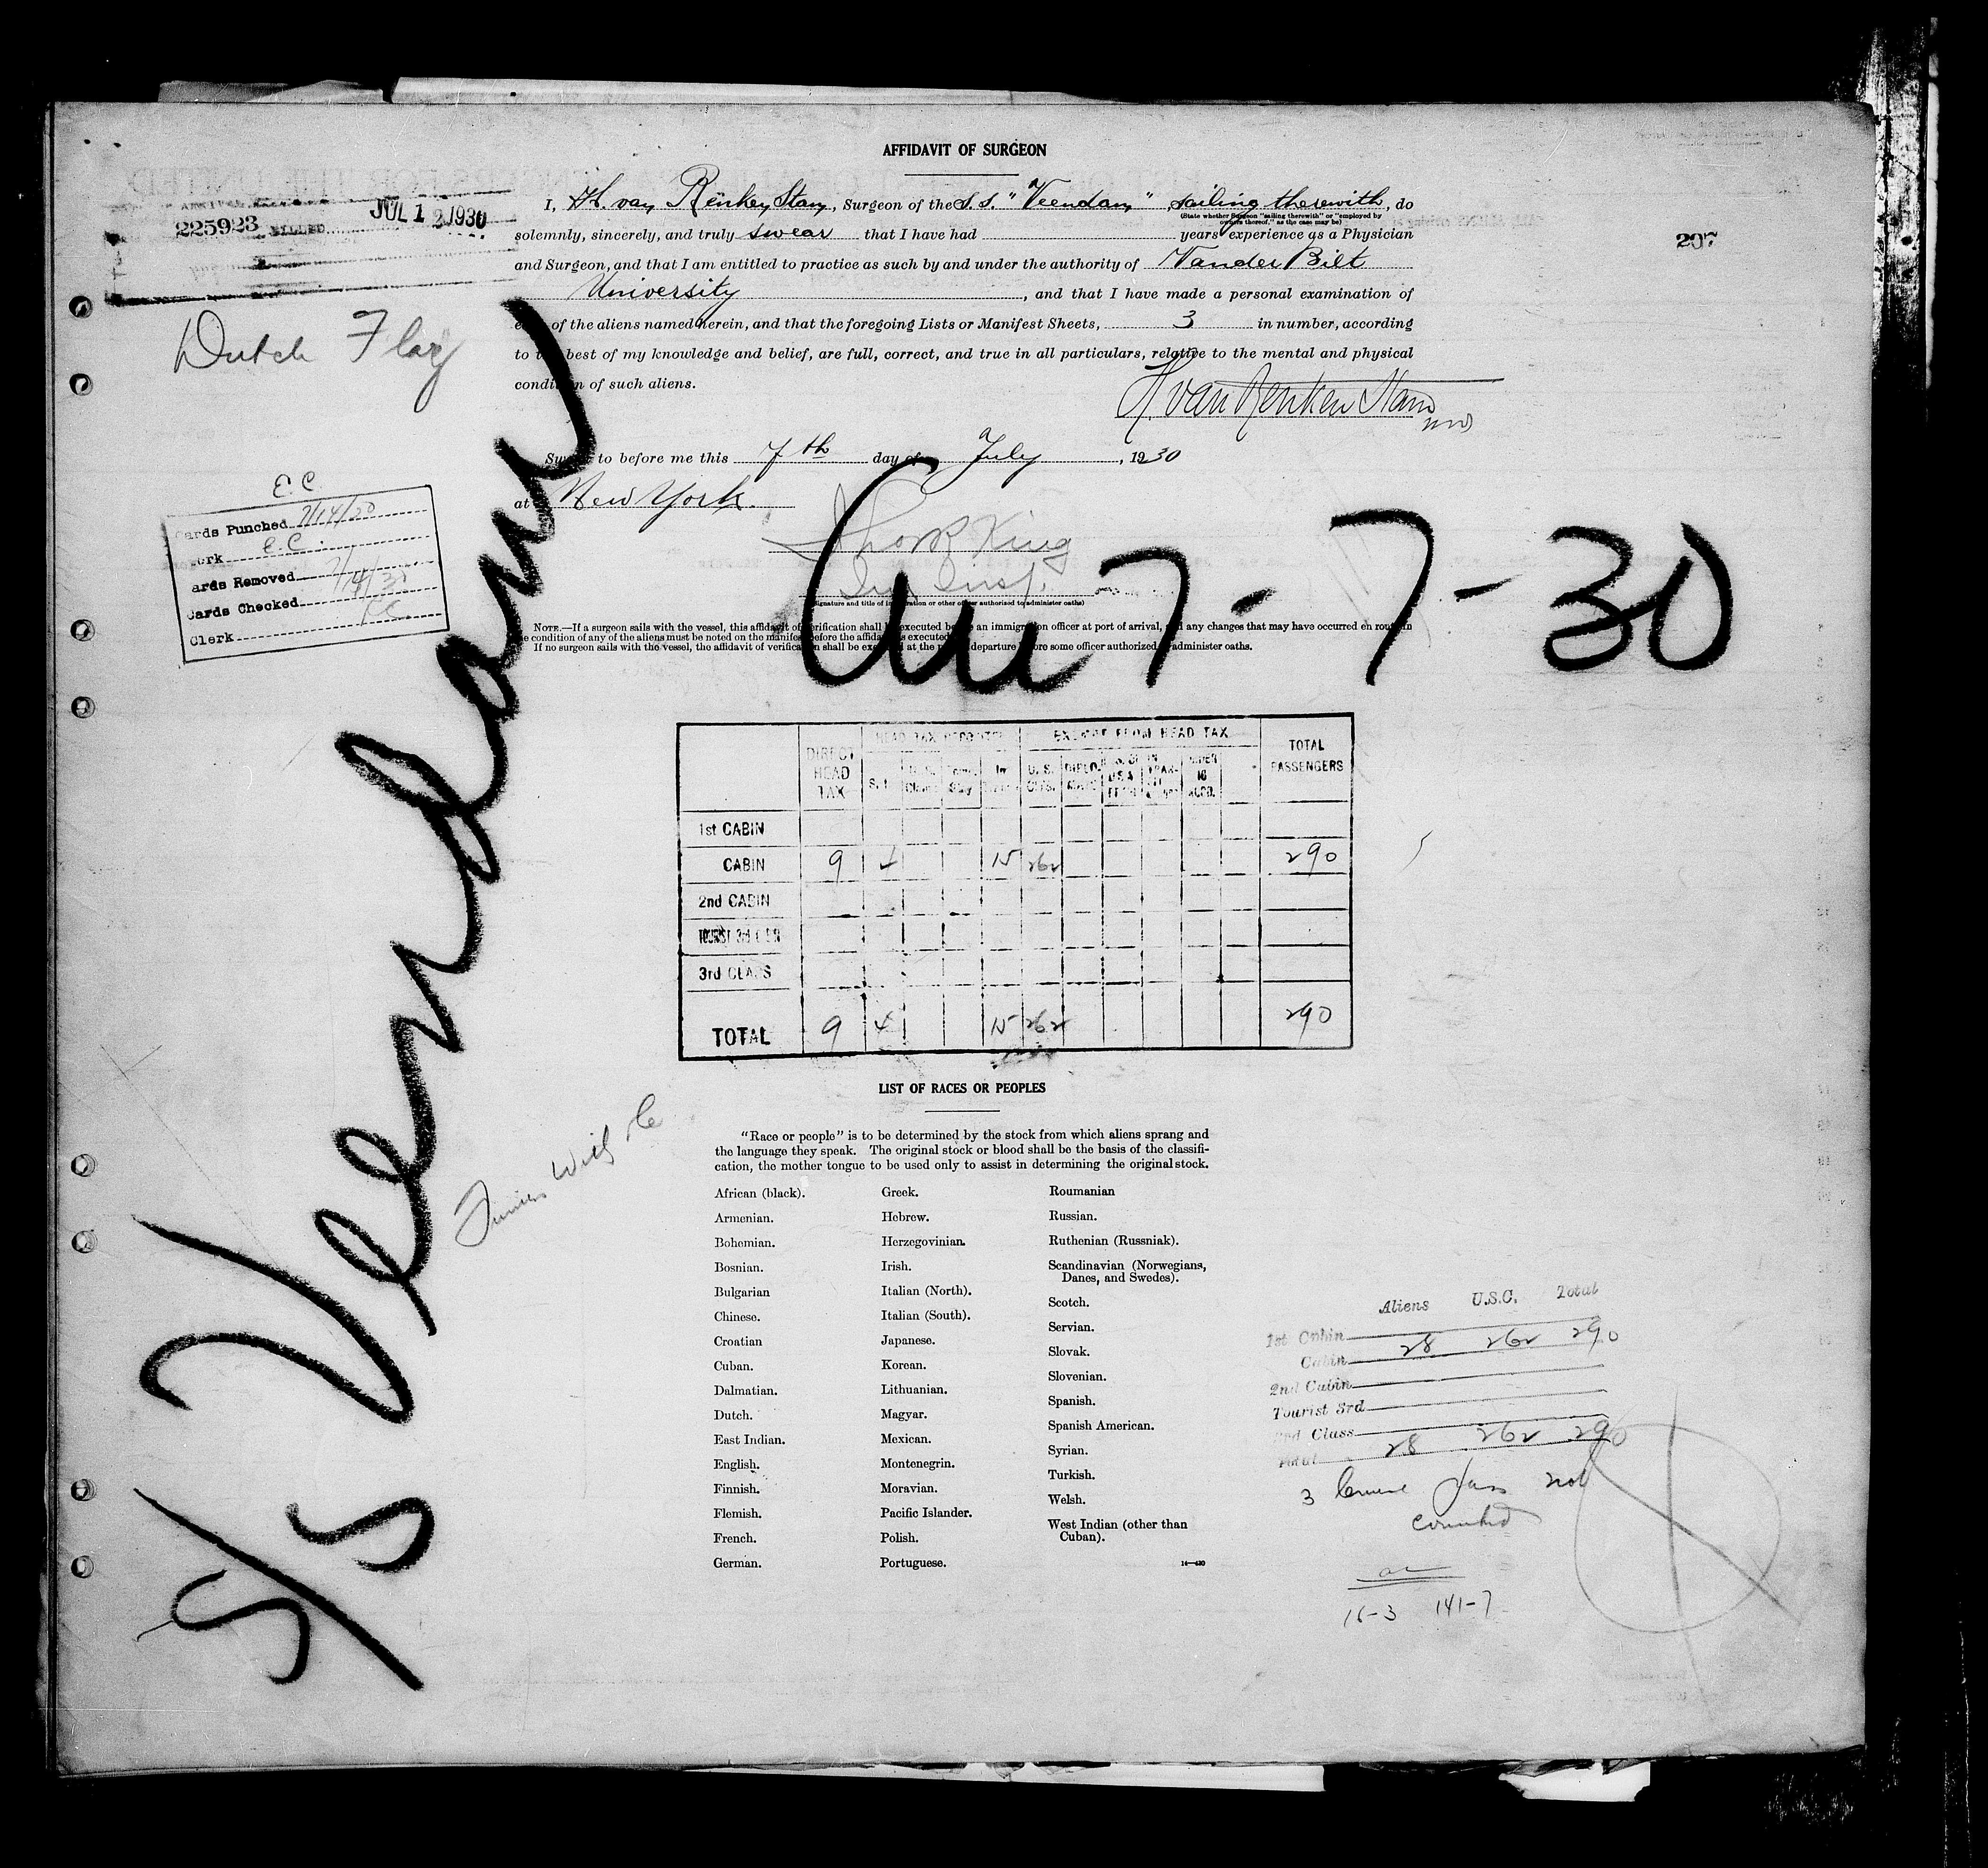 AFFIDAVIT OF SURGEON
I, H. van Renken Stam, Surgeon of the S.S. "Veendam", sailing therewith, do
(State whether Surgeon "sailing therewith" or "employed by
owners thereof," as the case may be)
solemnly, sincerely, and truly swear that I have had years' experience as a Physician
and Surgeon, and that I am entitled to practice as such by and under the authority of Vander Bilt
University, and that I have made a personal examination of
of the aliens named herein, and that the foregoing Lists or Manifest Sheets, 3 in number, according
to best of my knowledge and belief, are full, correct, and true in all particulars, relative to the mental and physical
condition of such aliens.
H. van Renken Stam
MD
Sworn to before me this 7th day of July, 1930
at New York.
Thos R King
Imm. Insp.
(Signature and title of immigration or other officer authorized to administer oaths)
NOTE.—If a surgeon sails with the vessel, this affidavit of verification shall be executed before an immigration officer at port of arrival, and any changes that may have occurred en route in
the condition of any of the aliens must be noted on the manifest before the affidavit is executed.
If no surgeon sails with the vessel, the affidavit of verification shall be executed at the port of departure before some officer authorized to administer oaths.
225923 FILLED JUL 12 1930
207
Dutch Flag
E.C.
Cards Punched 7/14/30
Clerk E.C.
Cards Removed 7/14/30
Cards Checked E.C.
Clerk
S/S Veendam
7-7-30
DIRECT HEAD TAX
HEAD TAX DEPOSITS
EXEMPT FROM HEAD TAX
TOTAL PASSENGERS
U. S. CITS.
DIPLO.
UNDER 16 ACCD.
1st CABIN
CABIN 9 4 15 262 290
2nd CABIN
TOURIST 3rd CABIN
3rd CLASS
TOTAL 9 4 15 262 290
LIST OF RACES OR PEOPLES
"Race or people" is to be determined by the stock from which aliens sprang and
the language they speak. The original stock or blood shall be the basis of the classifi-
cation, the mother tongue to be used only to assist in determining the original stock.
African (black).
Armenian.
Bohemian.
Bosnian.
Bulgarian
Chinese.
Croatian
Cuban.
Dalmatian.
Dutch.
East Indian.
English.
Finnish.
Flemish.
French.
German.
Greek.
Hebrew.
Herzegovinian.
Irish.
Italian (North).
Italian (South).
Japanese.
Korean.
Lithuanian.
Magyar.
Mexican.
Montenegrin.
Moravian.
Pacific Islander.
Polish.
Portuguese.
Roumanian
Russian.
Ruthenian (Russniak).
Scandinavian (Norwegians,
Danes, and Swedes).
Scotch.
Servian.
Slovak.
Slovenian.
Spanish.
Spanish American.
Syrian.
Turkish.
Welsh.
West Indian (other than
Cuban).
Aliens U.S.C. Total
1st Cabin
Cabin 28 262 290
2nd Cabin
Tourist 3rd
3rd Class
Total 28 262 290
3 Cruise pass not
counted
16-3 141-7